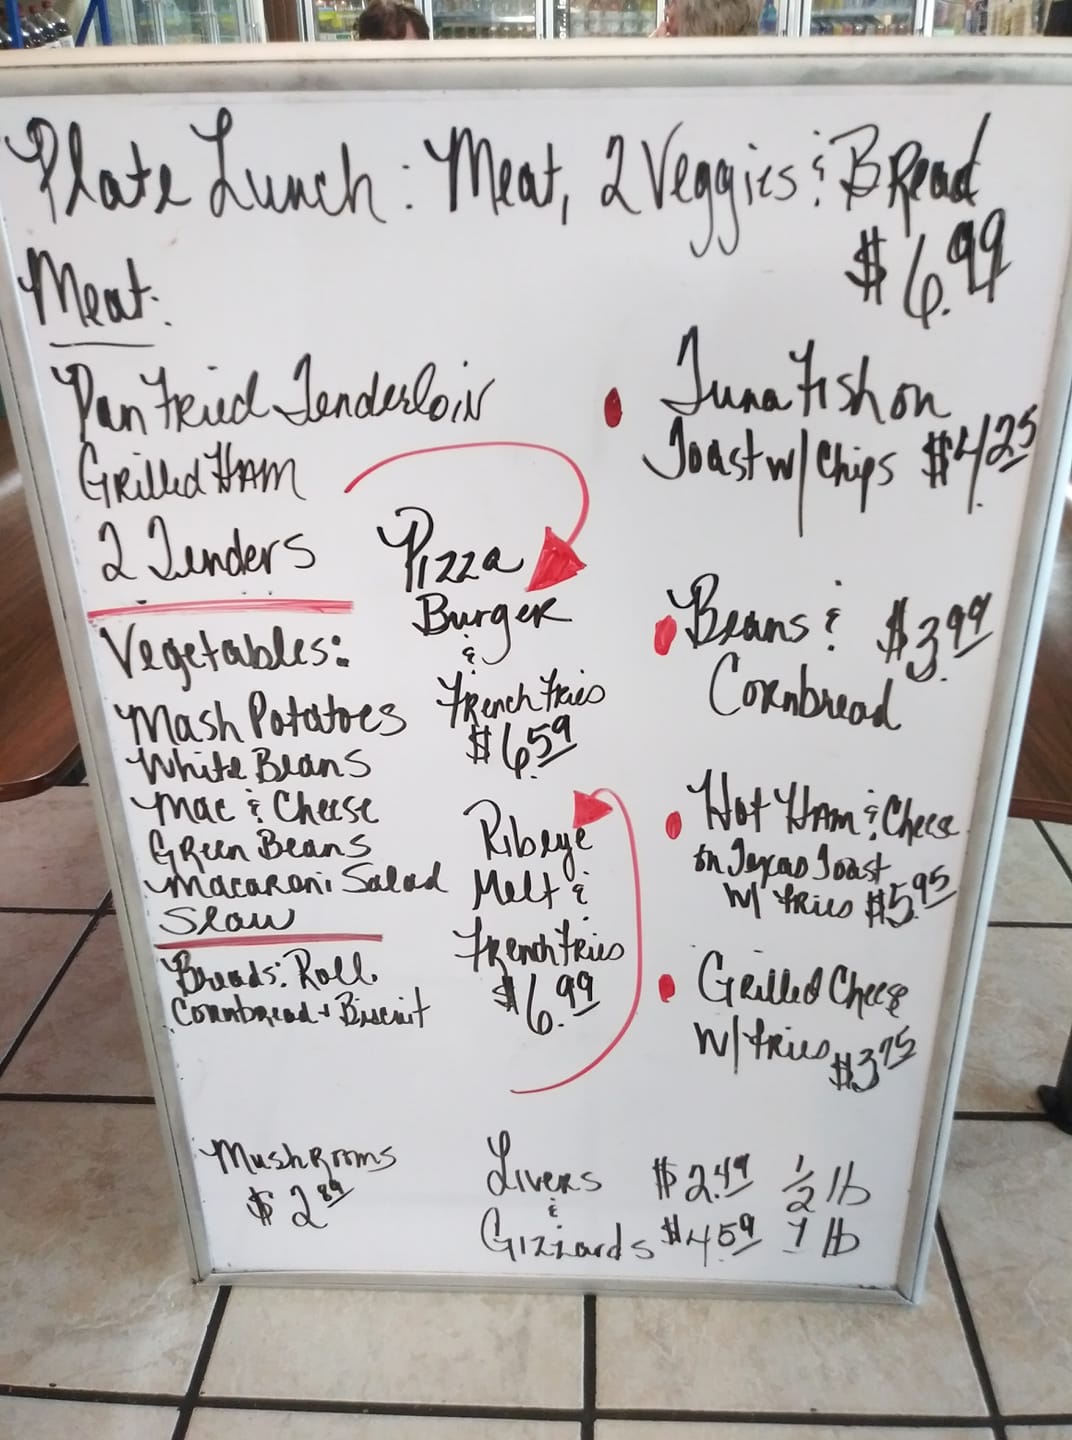 Plate Lunch: Meat, 2 Veggies & BRead
$6.99
Meat:
Pan Fried Tenderloin
GRilled HAM
2 Tenders
Vegetables:
Mash Potatoes
White Beans
Mac & Cheese
GReen Beans
Macaroni Salad
Slaw
Breads: Roll
Cornbread + Biscuit
Mushrooms
$2.89
Pizza
Burger
&
French Fries
$6.59
Ribeye
Melt &
French Fries
$6.99
Tuna Fish on
Toast w/ Chips $4.25
Beans & $3.99
Cornbread
Hot HAm & Cheese
on Texas Toast
w/ Fries $5.95
Grilled Cheese
w/ Fries $3.75
Livers $2.49 1/2 lb
&
Gizzards $4.59 1 lb